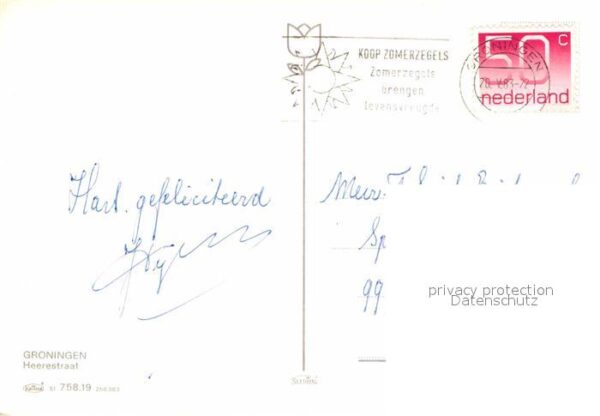 KOOP ZOMERZEGELS
Zomerzegels
brengen
levensvreugde
GRONINGEN
20. V. 83-22
50 C
nederland
Hart. gefeliciteerd
Mevr.
Sp
99
privacy protection
Datenschutz
GRONINGEN
Heerestraat
51 758.19